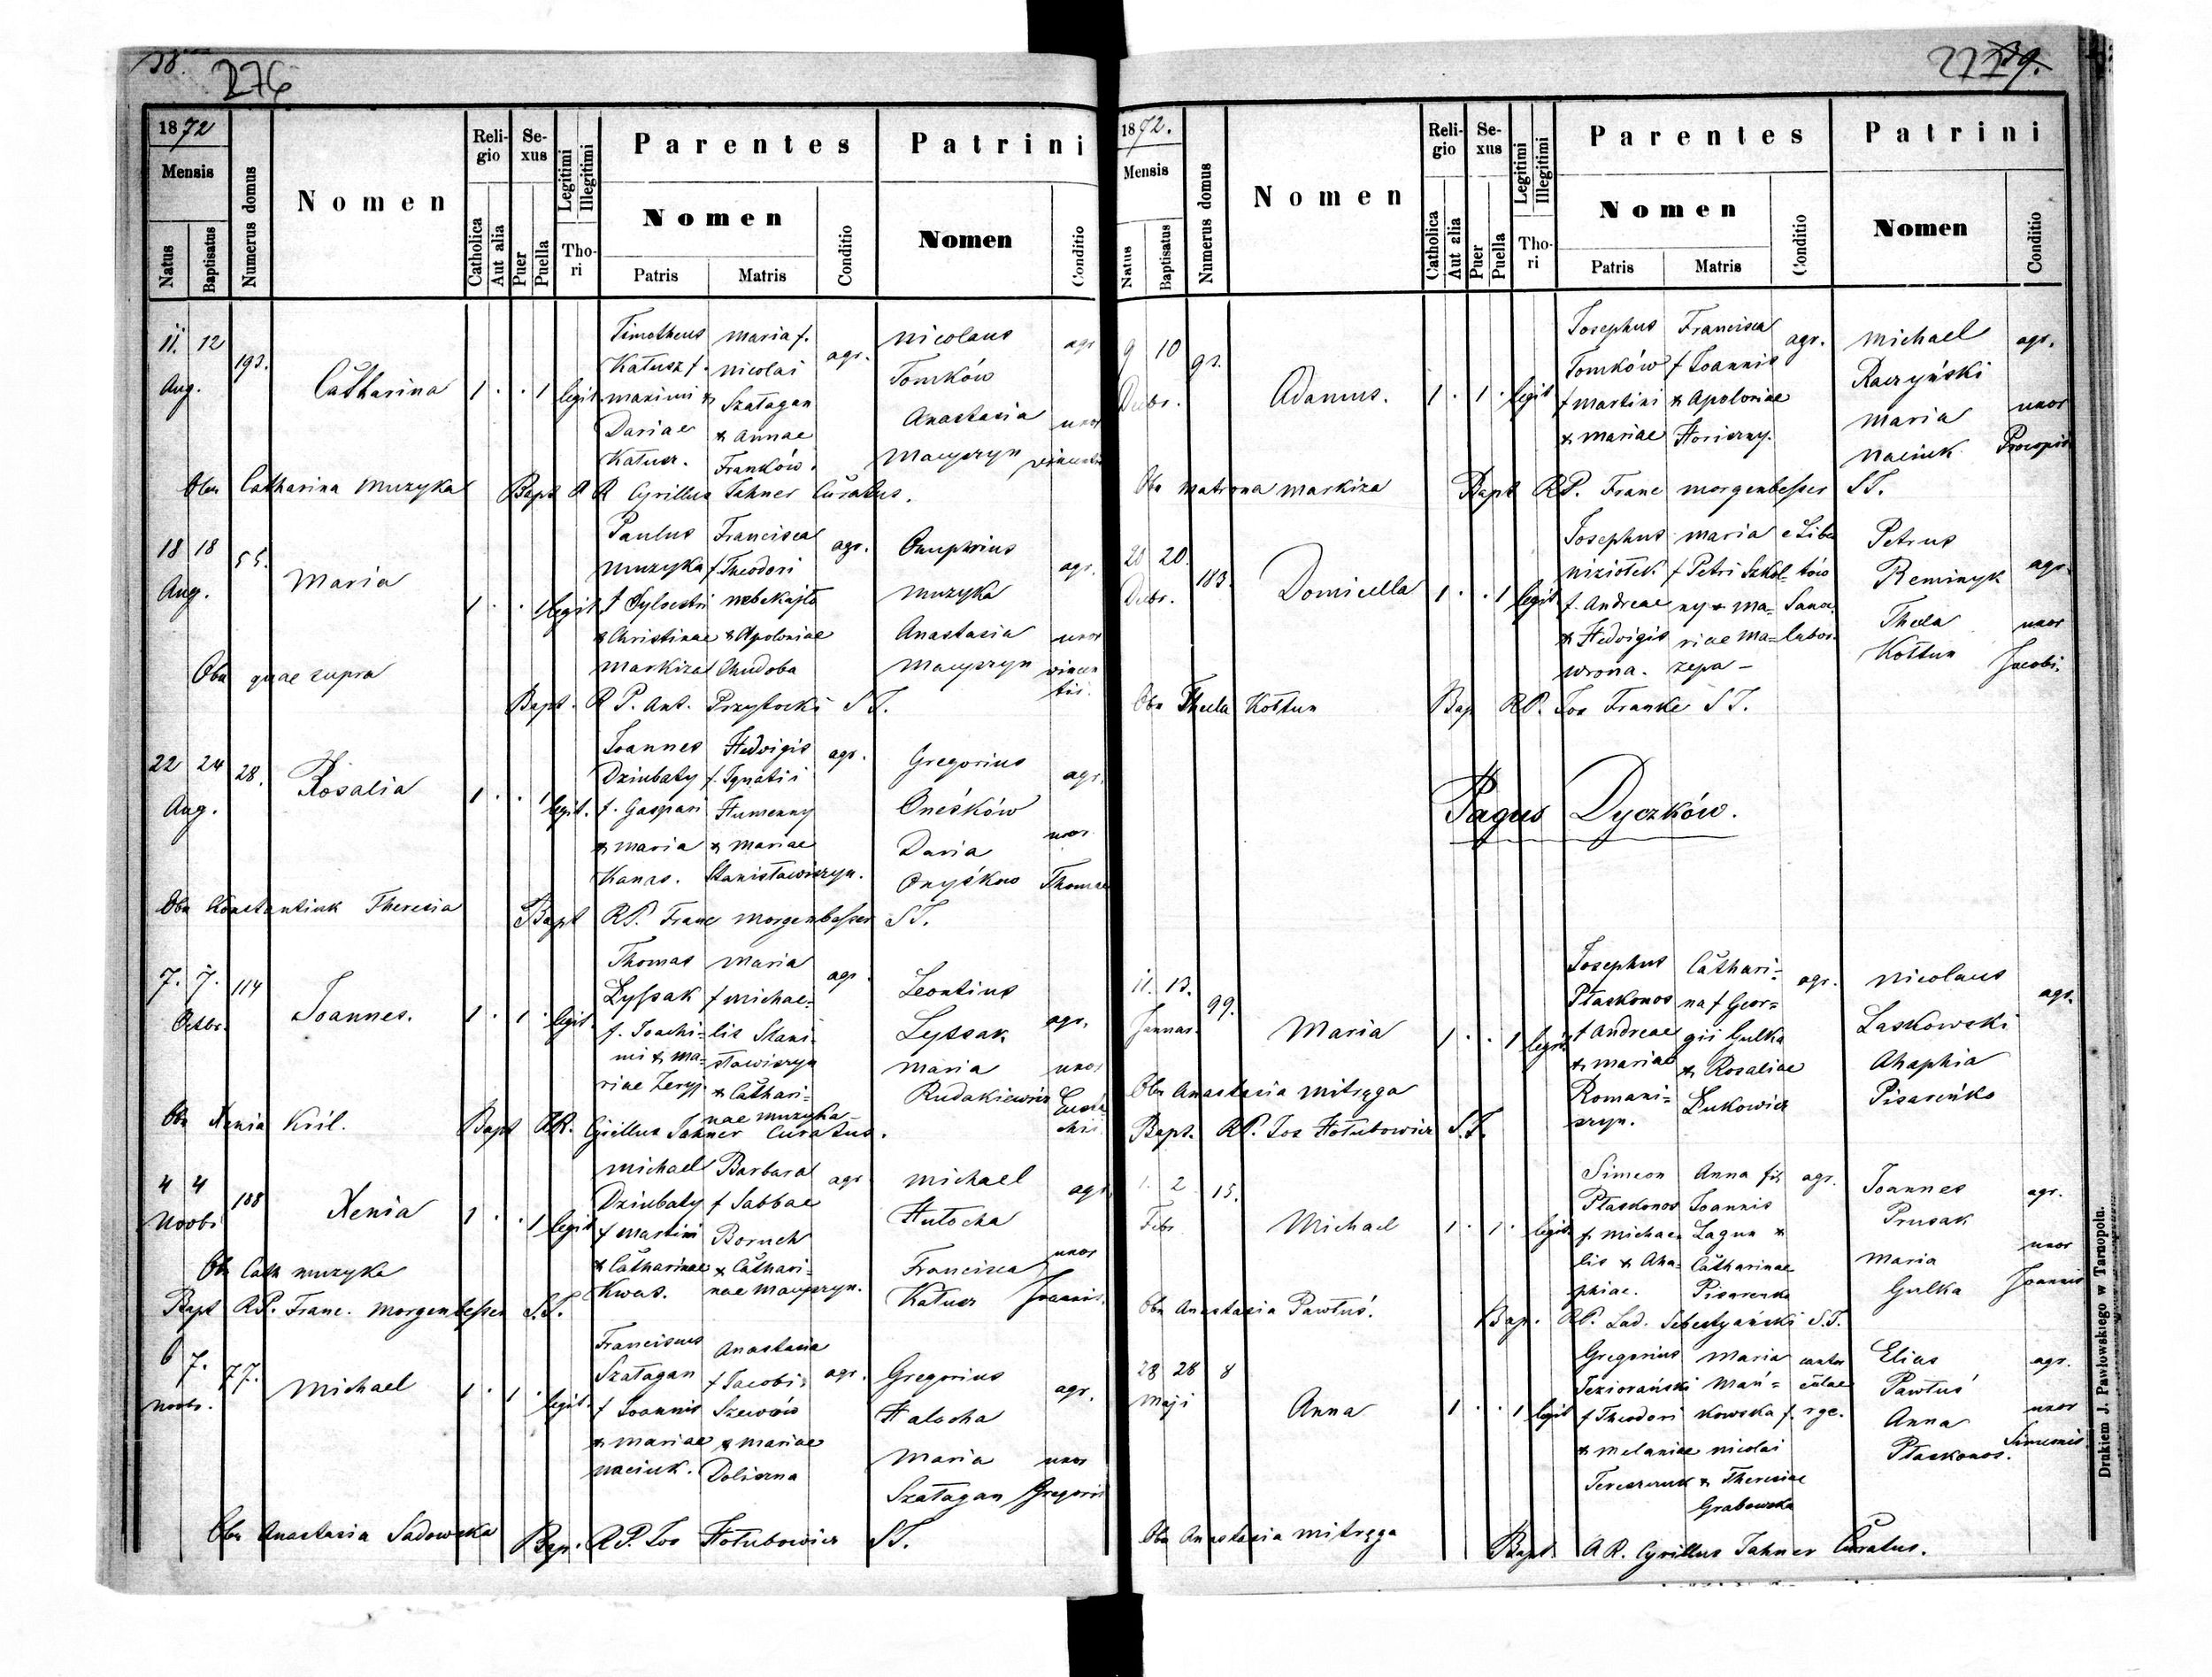 276
1872
Mensis
Natus
Baptisatus
Numerus domus
Nomen
Religio
Catholica
Aut alia
Sexus
Puer
Puella
Legitimi
Illegitimi
Thori
Parentes
Nomen
Patris
Matris
Conditio
Patrini
Nomen
Conditio
11. 12
Aug.
193.
Catharina
1 . . 1 legit
Timotheus
Katusz f.
maximi &
Dariae
Katusz.
Maria f.
nicolai
Szałagan
& Annae
Franków.
agr.
Nicolaus
Tomków
Anastasia
Macyszyn
agr
uxor
vincentii
Obn Catharina Muzyka Bapt A R Cyrillus Jahner Curatus.
18 18
Aug.
55.
Maria
1 . . 1 legit
Paulus
Muzyka
f Sylvestri
& Christinae
Markiza
Francisca
f Theodori
nebekajło
& Apoloniae
Chudoba
agr.
Onuphrius
Muzyka
Anastasia
Macyszyn
agr.
uxor
vincen
tii.
Obn quae supra
Bapt. R P. Ant. Przytocki S J.
22 24
Aug.
28.
Rosalia
1 . . 1 legit.
Joannes
Dziubaty
f. Gaspari
& Maria
Kanas.
Hedvigis
f. Ignatii
Humenny
& Mariae
Stanisławiszyn.
agr.
Gregorius
Oneśków
Daria
Onyśkow
agr.
uxor
Thomae
Obn Konstantiuk Theresia Bapt RP. Franc Morgenbesser S J.
7. 7.
Octbr.
114
Joannes.
1 . 1 . legit.
Thomas
Łyssak
f. Joachi=
mi & Ma=
riae Zeryj.
Maria
f Michae=
lis Stani=
sławiszyn
& Cathari=
nae Muzyka
agr.
Leontius
Lyssak
Maria
Rudakiewicz
agr.
uxor
Obn Xenia Król. Bapt AR. Cyrillus Jahner Curatus.
4 4
Novbr
188
Xenia
1 . . 1 legit
Michael
Dziubaty
f Martini
& Catharinae
Kwas.
Barbara
f Sabbae
Boruch
& Cathari=
nae Macyszyn.
agr
Michael
Hutocha
Francisca
Katusz
agr.
uxor
Joannis.
Obn Cath Muzyka
Bapt RP. Franc. Morgenbesser S.J.
6 7.
Novbr.
77.
Michael
1 . 1 . legit.
Franciscus
Szałagan
f Joannis
& Mariae
Naciuk.
Anastasia
f Jacobi
Szewców
& Mariae
Doliszna
agr.
Gregorius
Halocha
Maria
Szałagan
agr.
uxor
Gregorii
Obn Anastasia Sadowska Bap. R P. Jos Hołubowicz S J.
277
39.
1872.
Mensis
Natus
Baptisatus
Numerus domus
Nomen
Religio
Catholica
Aut alia
Sexus
Puer
Puella
Legitimi
Illegitimi
Thori
Parentes
Nomen
Patris
Matris
Conditio
Patrini
Nomen
Conditio
9 10
Decbr.
Adamus.
1 . 1 . legit
Josephus
Tomków
f Martini
& Mariae
Francisca
f Joannis
& Apoloniae
agr.
Michael
Raczyński
Maria
Naciuk
agr.
uxor
Procopii
Obn Matrona Markiza Bapt RP. Franc Morgenbesser S J.
20 20.
Decbr.
183.
Domicella
1 . . 1 legit.
Josephus
Niziołek
f. Andreae
& Hedvigis
Wrona.
Maria
f Petri Szkol=
ny & Ma=
riae Ma=
zepa
Petrus
Reminyk
Thecla
Kołtun
agr.
uxor
Jacobi.
Obn Thecla Kołtun Bap RP. Jos Franke S J.
Pagus Dyczków.
11. 13.
Januar.
99.
Maria
1 . . 1 legit.
Josephus
Płaskonos
f Andreae
& Mariae
Romani=
szyn.
Cathari=
na f Geor=
gii Gulka
& Rosaliae
Łukowicz
agr.
Nicolaus
Laskowski
Ahaphia
Pisareńko
agr.
Obn Anastasia Mitręga
Bapt. RP. Jos Hołubowicz S.J.
1. 2
Febr
15.
Michael
1 . 1 . legit.
Simeon
Płaskonos
f. Michae
lis & Aha=
phiae.
Anna fil
Joannis
Lagun &
Catharinae
Pisarenko
agr.
Joannes
Prusak
Maria
Gulka
agr.
uxor
Joannis
Obn Anastasia Pawłuś. Bap. RP. Lad. Sebestyański S.J.
28 28
Maji
8
Anna
1 . . 1 legit
Gregorius
Jeziorański
f Theodori
& Melaniae
Tereszczuk
Maria
Mań=
kowska f.
Nicolai
& Theresiae
Grabowska
Elias
Pawłuś
Anna
Płaskonos.
agr.
uxor
Simeonis
Obn Anastasia Mitręga Bapt. A R. Cyrillus Jahner Curatus.
Drukiem J. Pawłowskiego w Tarnopolu.